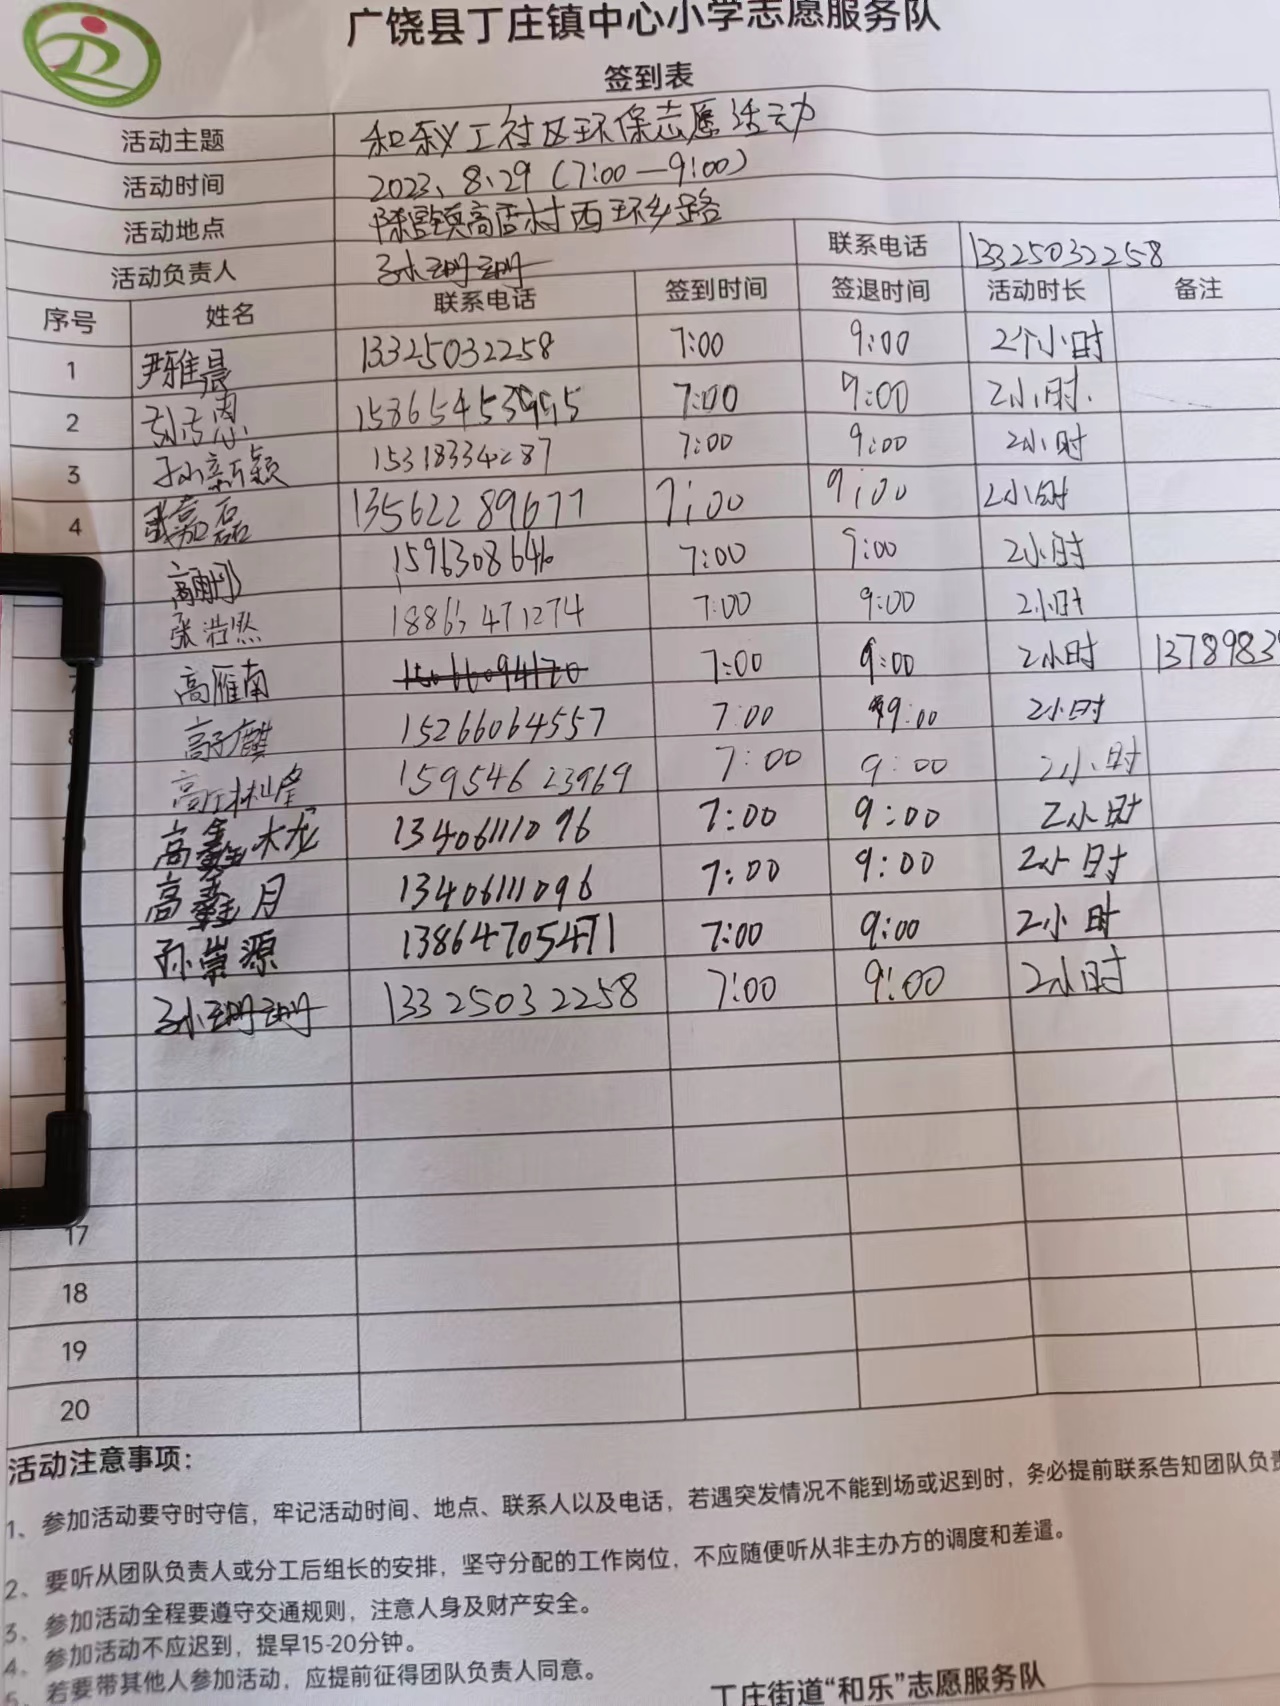 广饶县丁庄镇中心小学志愿服务队
签到表
活动主题 和义工社区环保志愿活动
活动时间 2023、8、29（7:00—9:00）
活动地点 陈官镇高店村西环乡路
活动负责人 孙玥玥 联系电话 13325032258
序号 姓名 联系电话 签到时间 签退时间 活动时长 备注
1 尹雅晨 13325032258 7:00 9:00 2个小时
2 7:00 9:00 2小时.
3 孙新颖 15318334287 7:00 9:00 2小时
4 张嘉磊 13562289677 7:00 9:00 2小时
1596308646 7:00 9:00 2小时
张浩然 7:00 9:00 2小时
高雁南 15066094120 7:00 9:00 2小时 13789839
高子麒 15266064557 7:00 9:00 2小时
15954623969 7:00 9:00 2小时
高鑫龙 13406111096 7:00 9:00 2小时
高鑫月 13406111096 7:00 9:00 2小时
孙崇源 13864705471 7:00 9:00 2小时
孙玥玥 13325032258 7:00 9:00 2小时
17
18
19
20
活动注意事项：
1、参加活动要守时守信，牢记活动时间、地点、联系人以及电话，若遇突发情况不能到场或迟到时，务必提前联系告知团队负责
2、要听从团队负责人或分工后组长的安排，坚守分配的工作岗位，不应随便听从非主办方的调度和差遣。
3、参加活动全程要遵守交通规则，注意人身及财产安全。
4、参加活动不应迟到，提早15-20分钟。
5、若要带其他人参加活动，应提前征得团队负责人同意。
丁庄街道“和乐”志愿服务队